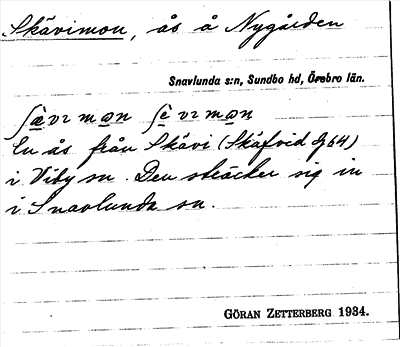 Skävimon, ås å Nygården
Snavlunda s:n, Sundbo hd, Örebro län.
ʃævɪmən ʃèvɪmən
En ås från Skävi (Skäfvid G64)
i Viby sn. Den sträcker sig in
i Snavlunda sn.
GÖRAN ZETTERBERG 1934.